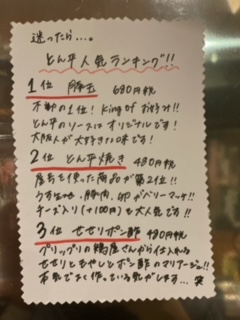 迷ったら…。
とん平人気ランキング!!
1位 豚玉 680円税
不動の1位! King of お好み!!
とん平のソースはオリジナルです!
大阪人が大好きな味です!
2位 とん平焼き 480円税
店名を使った商品が第2位!!
うすい生地、豚肉、卵がベリーマッチ!!
チーズ入り(+100円)も大人気です!!
3位 せせりポン酢 480円税
プリップリの鶏屋さんから仕入れる
せせりともやしとポン酢のマリアージュ!!
本気で太く作っている気がします…笑